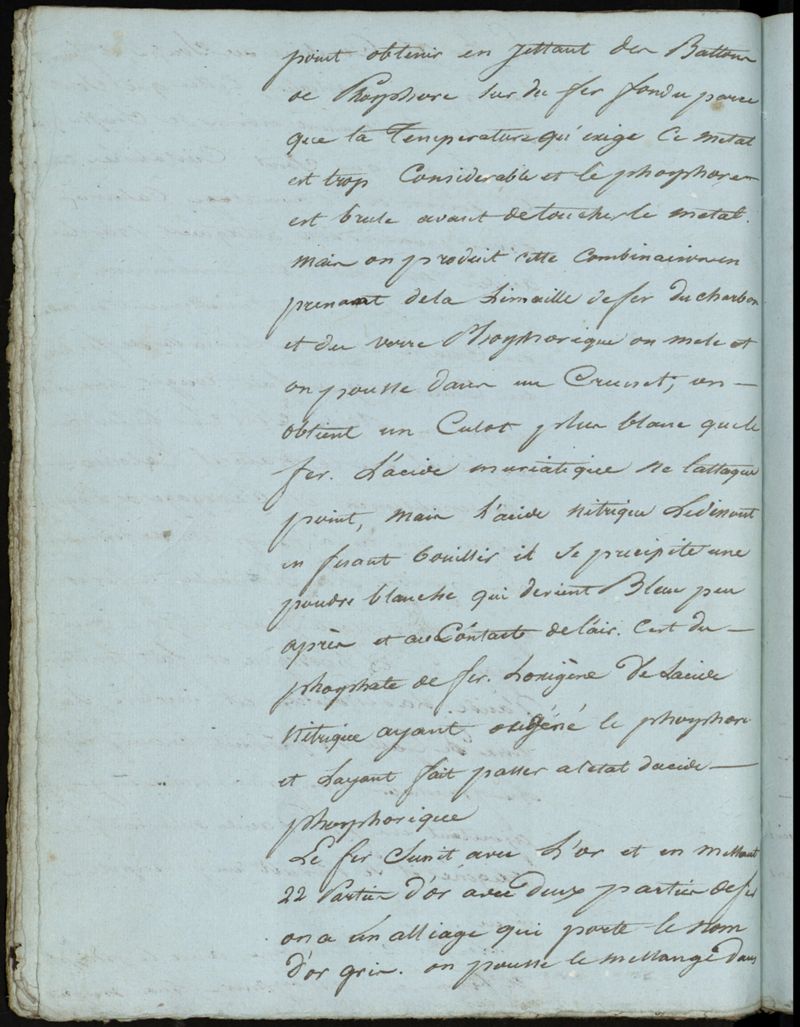 point obtenir en jettant des Battons
de Phosphore sur du fer fondu parce
que la Temperature qu'exige ce metal
est trop Considerable et le phosphore
est brulé avant de toucher le metal.
Mais on produit cette Combinaison en
prenant de la Limaille de fer du charbon
et du verre Phosphorique on mele et
on pousse dans un Creuset, on
obtient un Culot plus blanc que le
fer. L'acide muriatique ne l'attaque
point, mais L'acide Nitrique Le dissout
en fesant bouillir il se precipite une
poudre blanche qui devient Bleue peu
après et au Contacte de l'air. C'est du
phosphate de fer. Loxigène De Lacide
Nitrique ayant oxigéné le phosphore
et Layant fait passer a letat dacide
phosphorique
Le fer Sunit avec L'or et en mettant
22 Parties d'or avec Deux parties de fer
on a un alliage qui porte le Nom
D'or gris. on pousse le mellange Dans